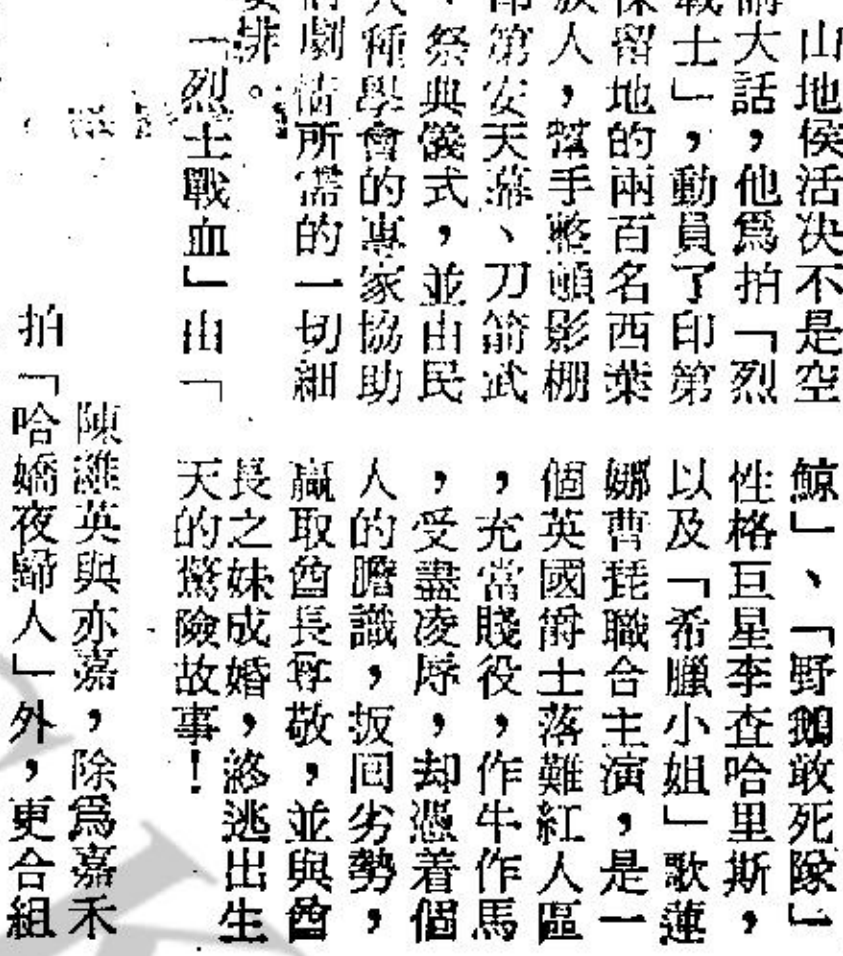 山地侯活决不是空
大話，他爲拍「烈
戰士」，動員了印第
保留地的兩百名西葉
族人，幫手整頓影棚
印第安天幕、刀箭武
、祭典儀式，並由民
人種學會的專家協助
劇情所需的一切細
排。
「烈士戰血」由「
鯨」、「野鵝敢死隊」
性格巨星李查哈里斯，
以及「希臘小姐」歌蓮
娜曹琵職合主演，是一
個英國爵士落難紅人區
，充當賤役，作牛作馬
，受盡凌辱，却憑着個
人的膽識，扳回劣勢，
贏取酋長尊敬，並與酋
長之妹成婚，終逃出生
天的驚險故事！
陳雄英與亦嘉，除爲嘉禾
拍「哈嬌夜歸人」外，更合組